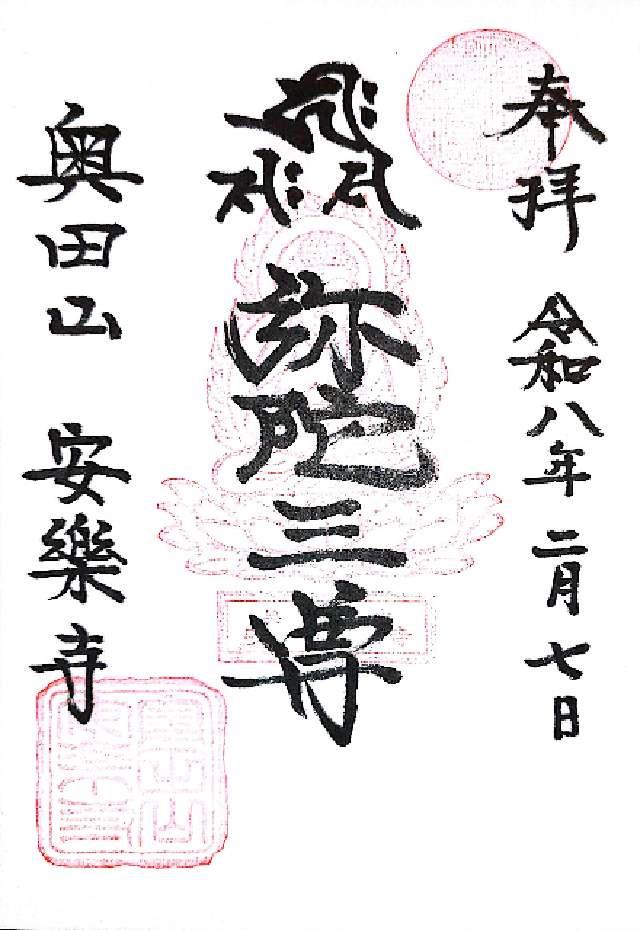 奉拝
令和八年二月七日
弥陀三尊
奥田山 安樂寺